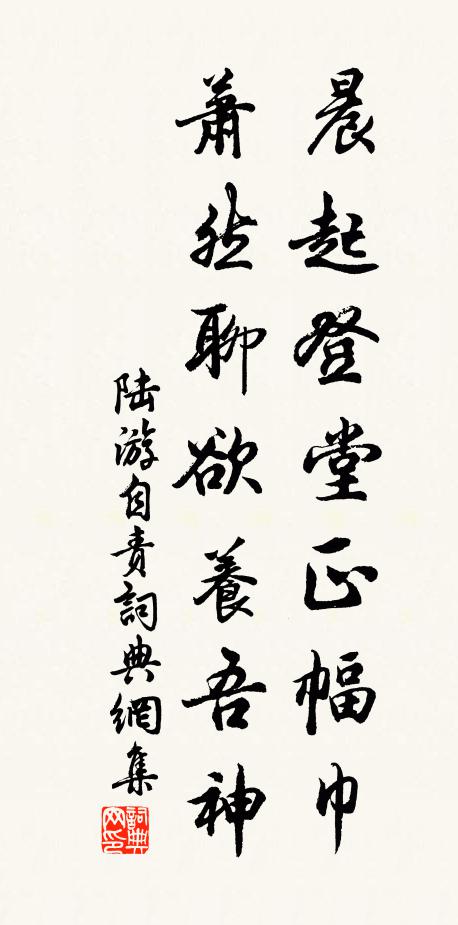 晨起登堂正幅巾
蕭然聊欲養吾神
陆游自责詞典網集
詞典
网印